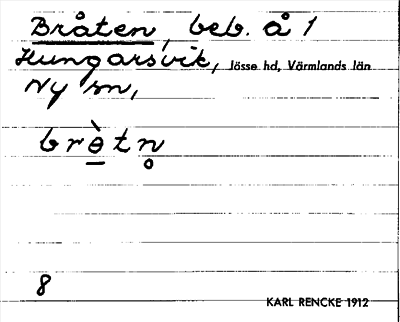 Bråten, beb. å 1
Hungarsvik, Jösse hd, Värmlands län
Ny sn,
brè̱tn̥
8
KARL RENCKE 1912